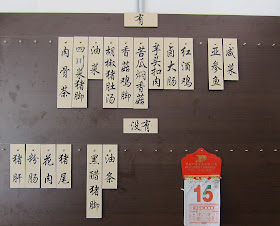 有
肉骨茶
四川菜猪肚汤
油菜
胡椒猪肚汤
香菇鸡脚
苦瓜焖香菇
芋头扣肉
卤大肠
红酒鸡
亚参鱼
咸菜
没有
猪肝
粉肠
花肉
猪尾
黑醋猪脚
油条
15